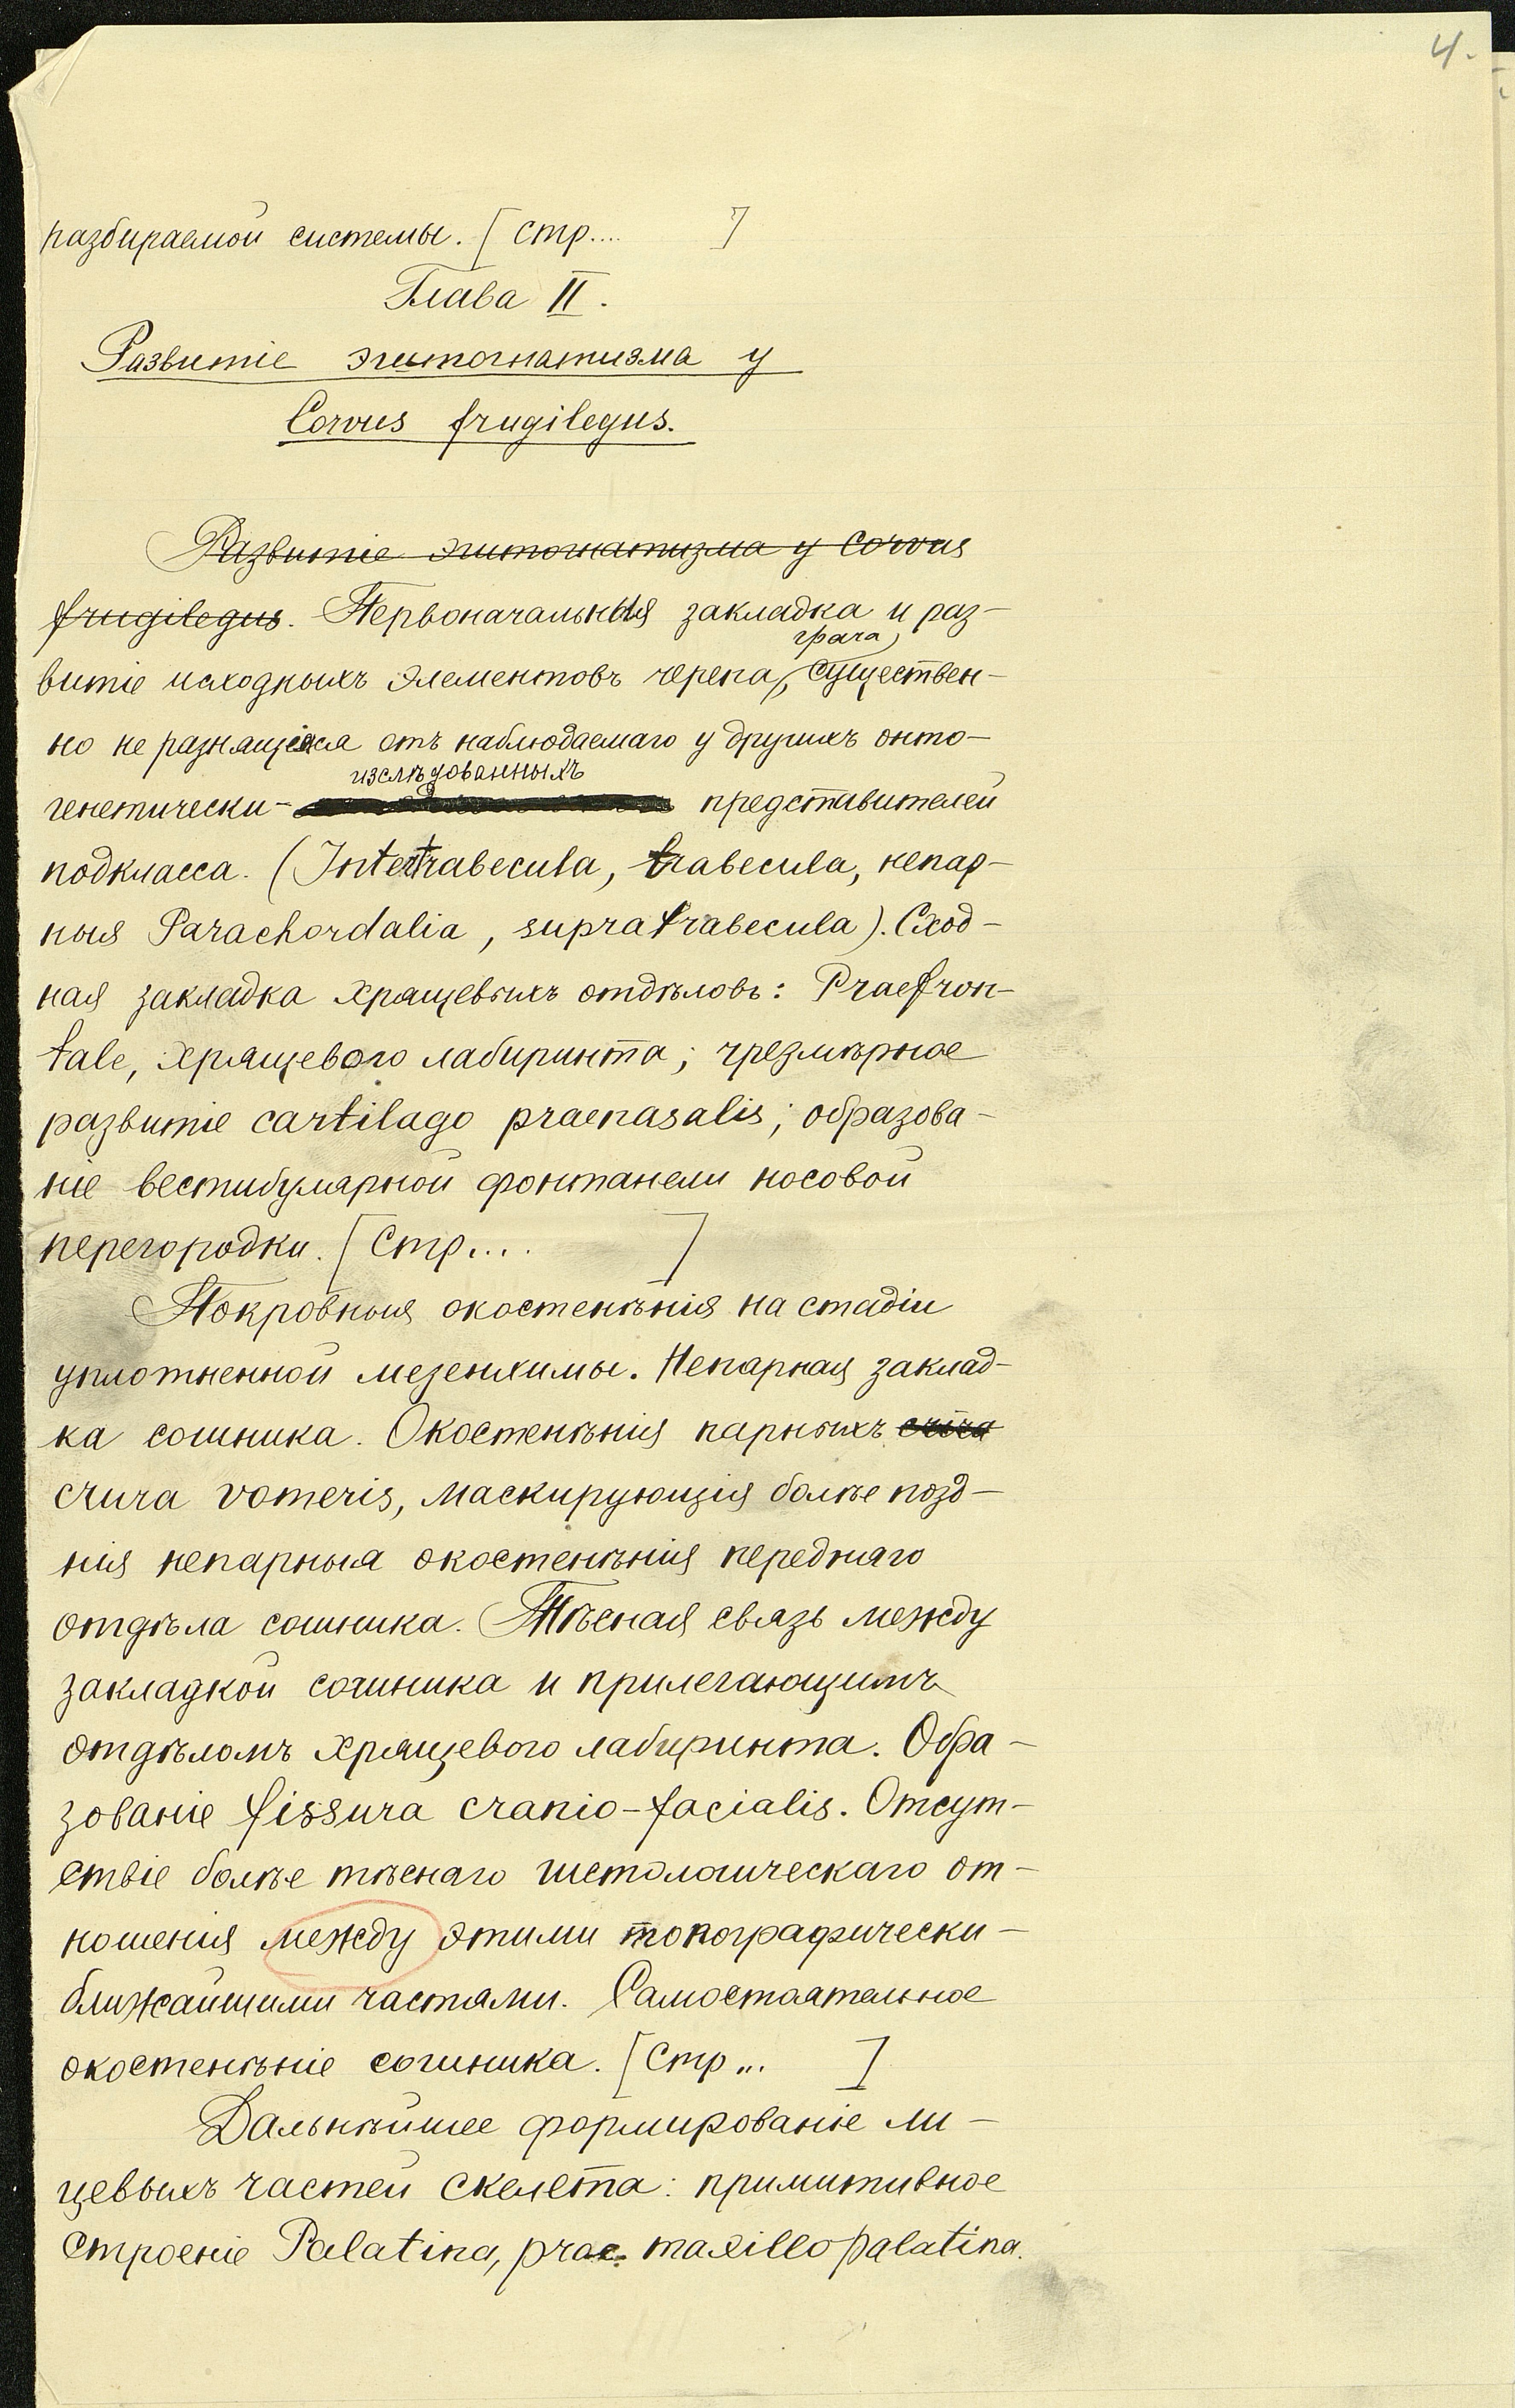 4.
разбираемой системы. [Стр.... ]
Глава II.
Развитіе эгитогнатизма у
Corvus frugilegus.
Развитіе эгитогнатизма у Corvus
frugilegus. Первоначальныя закладка и раз-
грача,
витіе исходныхъ элементовъ черепа, существен-
но не разнящіяся отъ наблюдаемаго у другихъ онто-
изслѣдованныхъ
генетически- представителей
подкласса. (Intertrabecula, trabecula, непар-
ныя Parachordalia, supratrabecula). Сход-
ная закладка хрящевыхъ отдѣловъ: Praefron-
tale, хрящевого лабиринта; чрезмѣрное
развитіе cartilago praenasalis; образова-
ніе вестибулярной фонтанели носовой
перегородки. [Стр.... ]
Покровныя окостенѣнія на стадіи
уплотненной мезенхимы. Непарная заклад-
ка сошника. Окостенѣнія парныхъ
crura vomeris, маскирующія болѣе позд-
нія непарныя окостенѣнія передняго
отдѣла сошника. Тѣсная связь между
закладкой сошника и прилегающимъ
отдѣломъ хрящевого лабиринта. Обра-
зованіе fissura cranio-facialis. Отсут-
ствіе болѣе тѣснаго гистологическаго от-
ношенія между этими топографически-
ближайшими частями. Самостоятельное
окостенѣніе сошника. [Стр... ]
Дальнѣйшее формированіе ли-
цевыхъ частей скелета: примитивное
строеніе Palatina, prac. maxillopalatina.